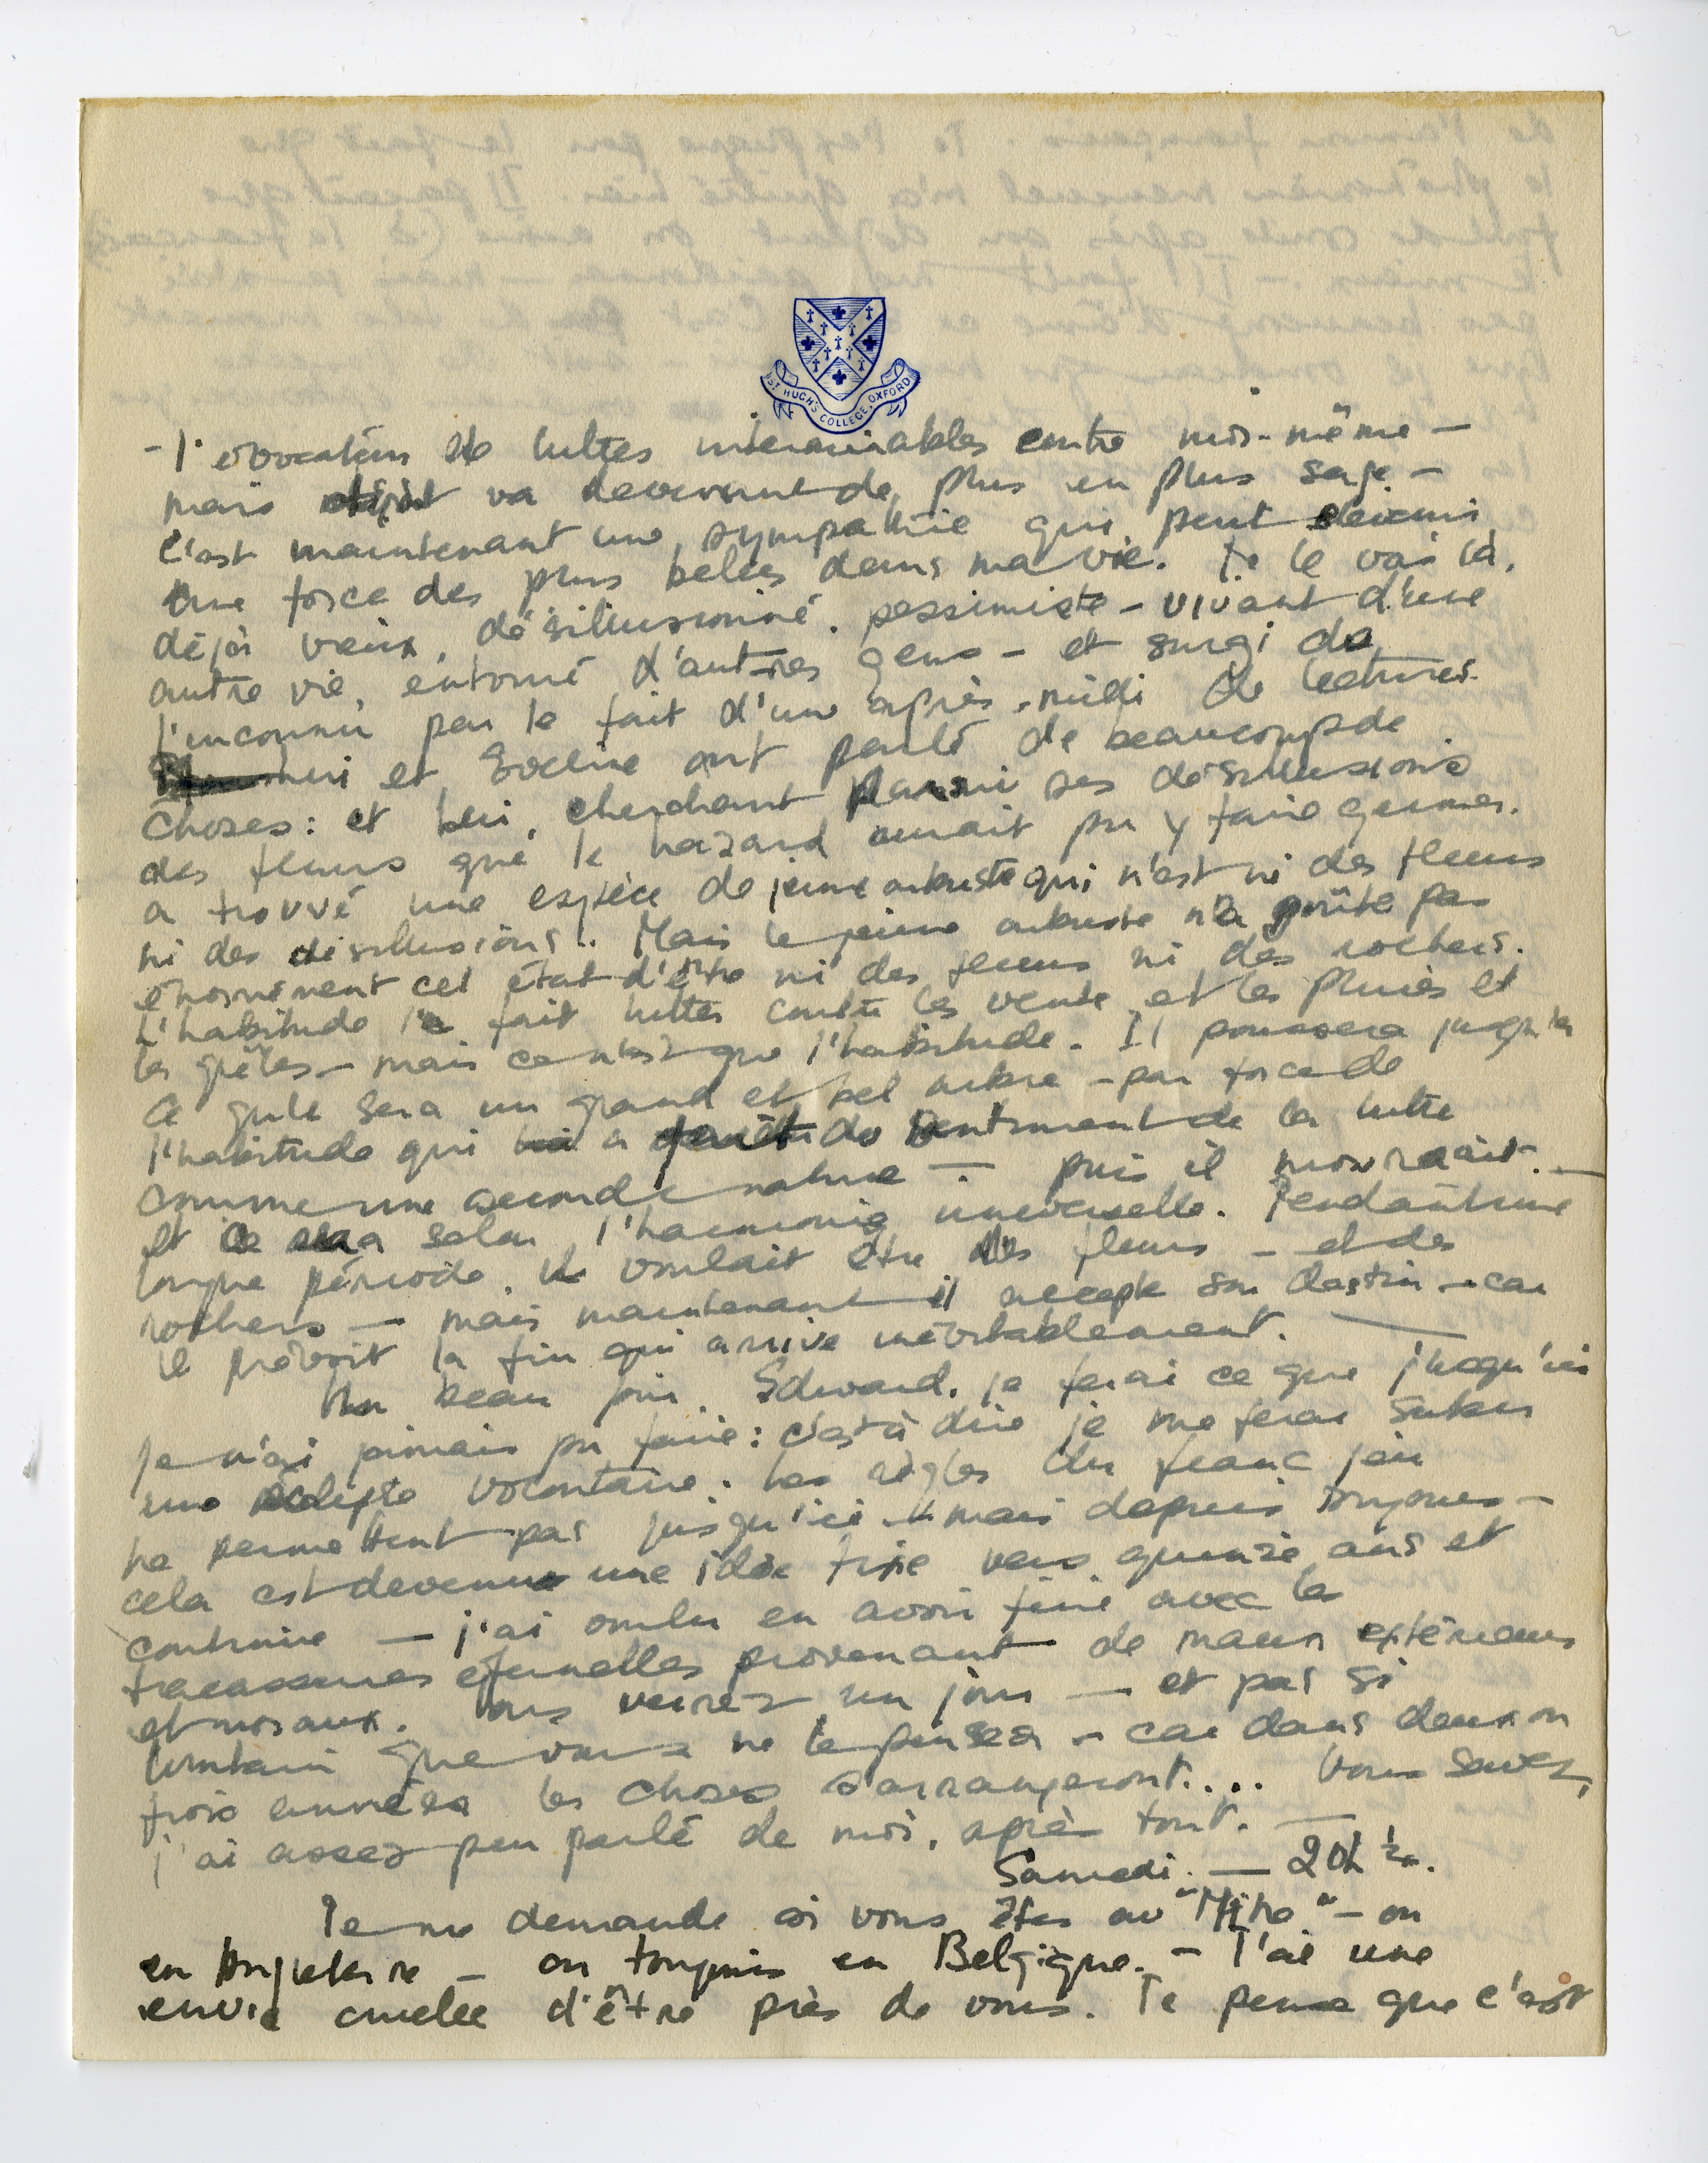 ST HUGH'S COLLEGE, OXFORD
- l'évocation de luttes interminables contre moi-même -
mais va devenant de plus en plus sage -
c'est maintenant une sympathie qui peut devenir
une force des plus belles dans ma vie. Je le vois là,
déjà vieux, désillusionné, pessimiste - vivant d'une
autre vie, entouré d'autres gens - et surgi de
l'inconnu par le fait d'une après-midi de lectures.
lui et Eveline ont parlé de beaucoup de
choses: et lui, cherchant parmi ses désillusions
des fleurs que le hazard aurait pu y faire germer.
a trouvé une espèce de jeune arbuste qui n'est ni des fleurs
ni des désillusions. Mais le jeune arbuste n'a goûté pas
énormément cet état d'être ni des fleurs ni des rochers.
L'habitude l'a fait lutter contre les vents et les pluies et
les grêles - mais ce n'est que l'habitude. Il poussera jusqu'à
ce qu'il sera un grand et bel arbre - par force de
l'habitude qui a du sentiment de la lutte
comme une seconde nature - puis il mourrait. -
et ce sera selon l'harmonie universelle. Pendant une
longue période, il voulait être des fleurs - et des
rochers - mais maintenant il accepte son destin - car
il prévoit la fin qui arrive inévitablement. -
Un beau jour, Edward, je ferai ce que jusqu'ici
je n'ai jamais pu faire: c'est à dire je me ferai subir
une éclipse volontaire. Les règles du franc jeu
ne permettent pas jusqu'ici - mais depuis toujours -
cela est devenue une idée fixe vers quinze ans et
continue - j'ai voulu en avoir fini avec les
tracasseries éternelles provenant de maux extérieurs
et moraux. Vous verrez un jour - et pas si
lointain que vous ne le pensez - car dans deux ou
trois années les choses s'arrangeront.... Vous savez,
j'ai assez peu parlé de moi, après tout. -
Samedi. - 20h ½.
Je me demande si vous êtes au - ou
en Angleterre - ou toujours en Belgique. - J'ai une
envie cruelle d'être près de vous. Je pense que c'est